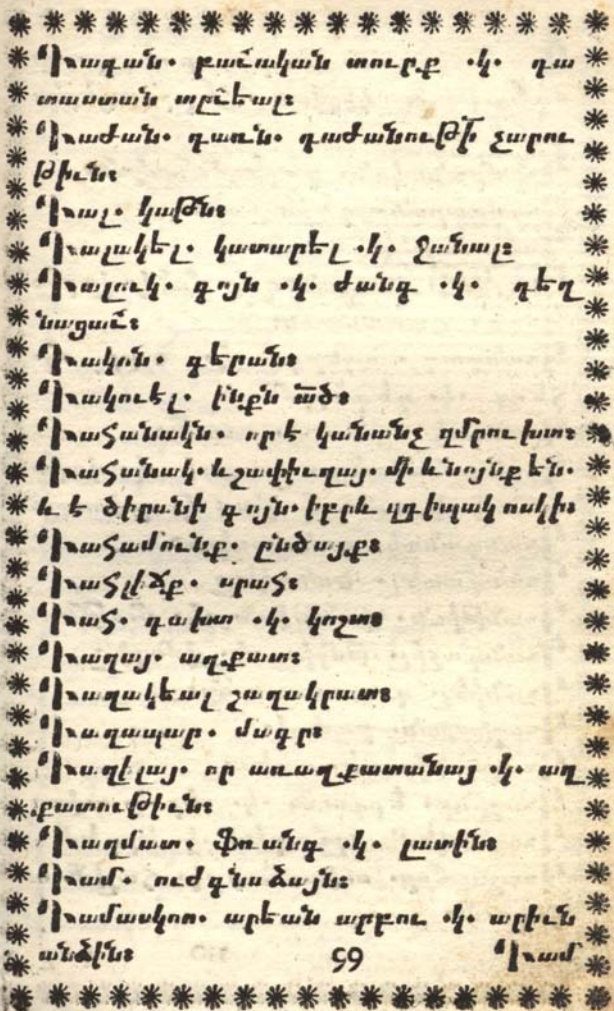 Դագան. բաւական տուրք .կ. դա
տաստան տըւեալ։
Դաժան. դառն. դաժանութի՟ չարու
թիւն։
Դալ. կաթն։
Դալակել. կատարել .կ. ջանալ։
Դալուկ. գոյն .կ. ժանգ .կ. դեղ
նացաւ։
Դակոն. գերան։
Դակուել. ինքն ա՟ծ։
Դահանակն. որ է կանանչ զմրուխտ։
Դահանակ. և շափիւղայ. մի և նոյնք են.
և է ծիրանի գոյն. իբրև զդիպակ ոսկի։
Դահամունք. ընծայք։
Դահլիճք. սրահ։
Դահ. դախտ .կ. կոշտ։
Դաղայ. աղքատ։
Դաղակեալ շաղակրատ։
Դաղապար. մագր։
Դաղէլայ. որ առաղքատանայ .կ. աղ
քատութիւն։
Դաղմատ. Փռանգ .կ. լատին։
Դամ. ուժգնաձայն։
Դամասկոս. արեան արբու .կ. արիւն
անձին։ 59 Դամ